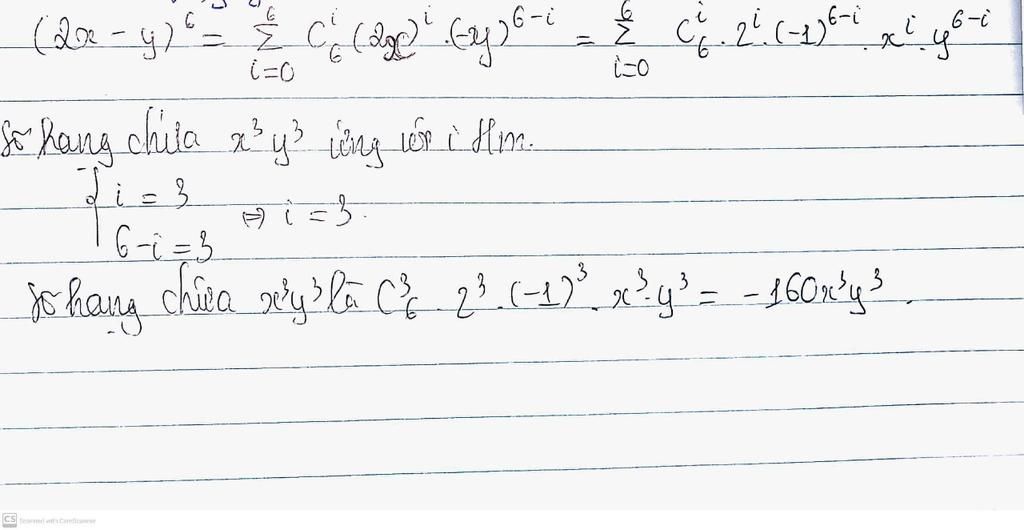 (2x - y)⁶ = Σ_{i=0}^{6} C₆ⁱ (2x)ⁱ . (-y)^{6-i} = Σ_{i=0}^{6} C₆ⁱ . 2ⁱ . (-1)^{6-i} . xⁱ . y^{6-i}
Số hạng chứa x³y³ ứng với i t/m.
{ i = 3
6-i = 3 ⇒ i = 3.
Số hạng chứa x³y³ là C₆³ . 2³ . (-1)³ . x³.y³ = -160x³y³.
CS Scanned with CamScanner